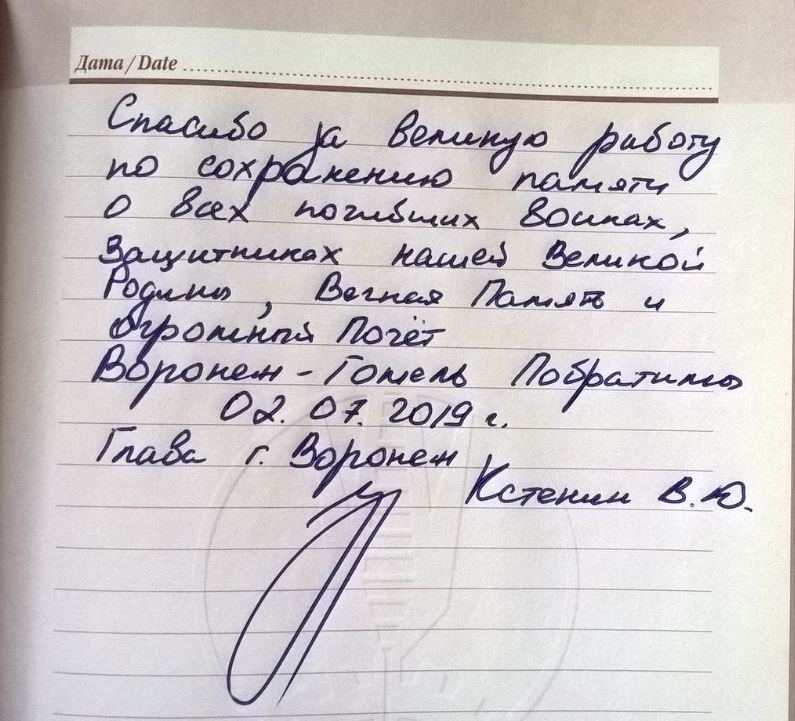 Дата / Date
Спасибо за великую работу
по сохранению памяти
о всех погибших воинах,
Защитниках нашей Великой
Родины, Вечная Память и
огромный Почёт
Воронеж - Гомель Побратимы
02.07.2019 г.
Глава г. Воронеж
Кстенин В.Ю.